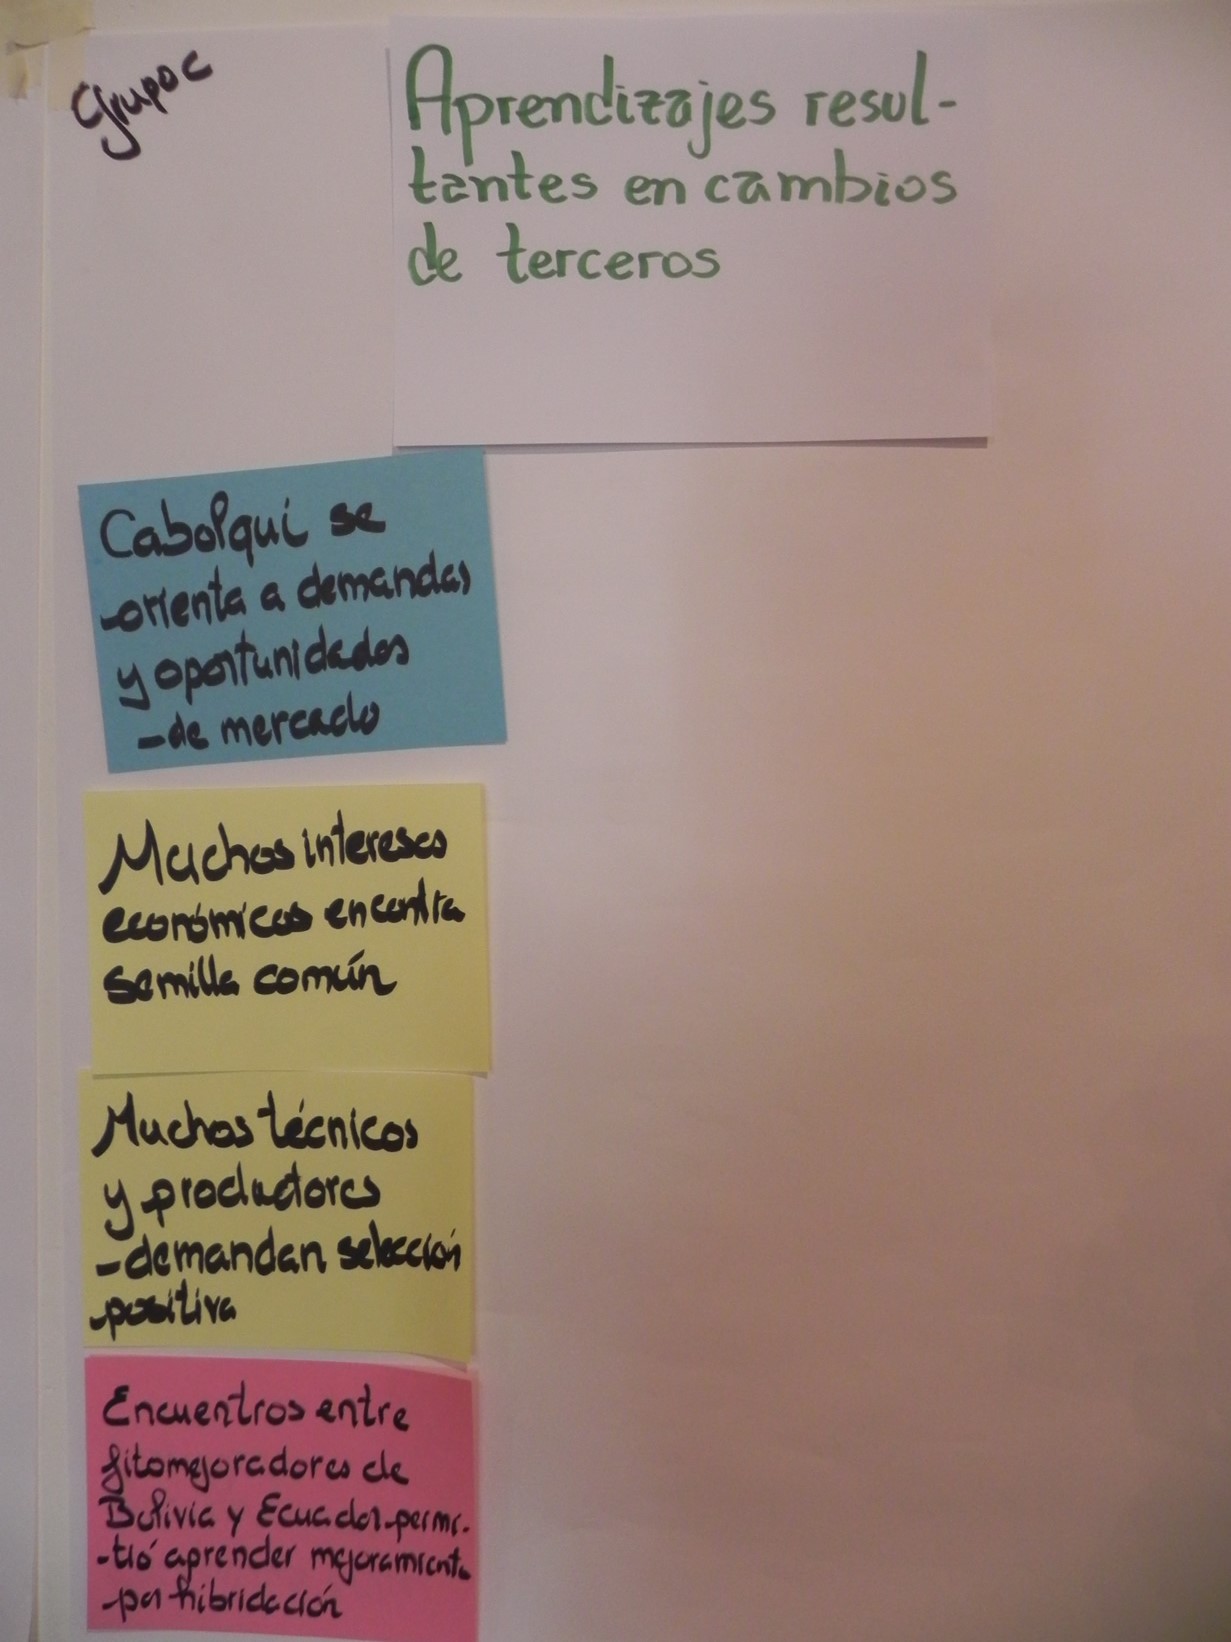 Grupo C
Aprendizajes resul-
tantes en cambios
de terceros
Cabolqui se
orienta a demandas
y oportunidades
de mercado
Muchos intereses
económicos en contra
semilla común
Muchos técnicos
y productores
demandan selección
positiva
Encuentros entre
fitomejoradores de
Bolivia y Ecuador permi-
tió aprender mejoramiento
por hibridación